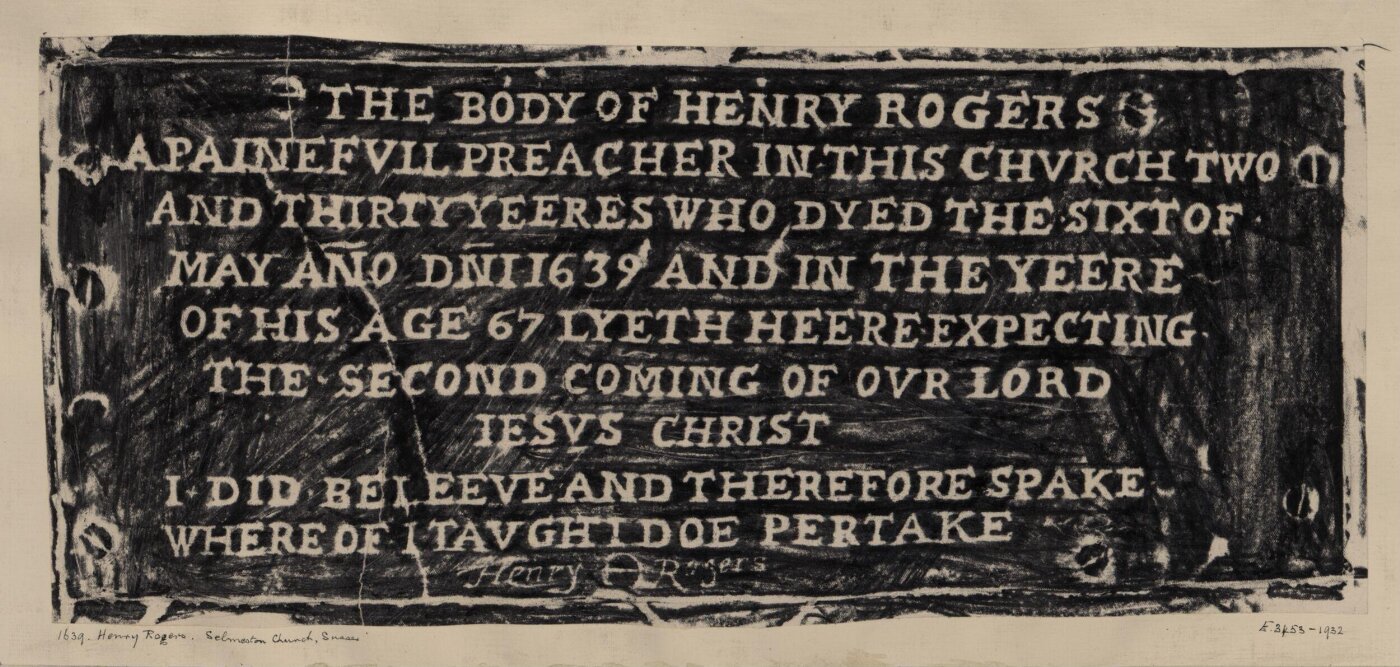 THE BODY OF HENRY ROGERS
A PAINEFVLL PREACHER IN THIS CHVRCH TWO
AND THIRTY YEERES WHO DYED THE SIXT OF
MAY AÑO DÑI 1639 AND IN THE YEERE
OF HIS AGE 67 LYETH HEERE EXPECTING
THE SECOND COMING OF OVR LORD
IESVS CHRIST
I DID BELEEVE AND THEREFORE SPAKE
WHERE OF I TAVGHT I DOE PERTAKE
Henry Rogers
1639. Henry Rogers. Selmeston Church, Sussex
E.3453-1932